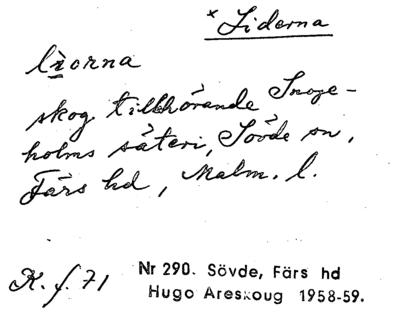 * Liderna
liorna
skog tillhörande Snoge-
holms säteri, Sövde sn,
Färs hd, Malm. l.
K. f. 71
Nr 290. Sövde, Färs hd
Hugo Areskoug 1958-59.